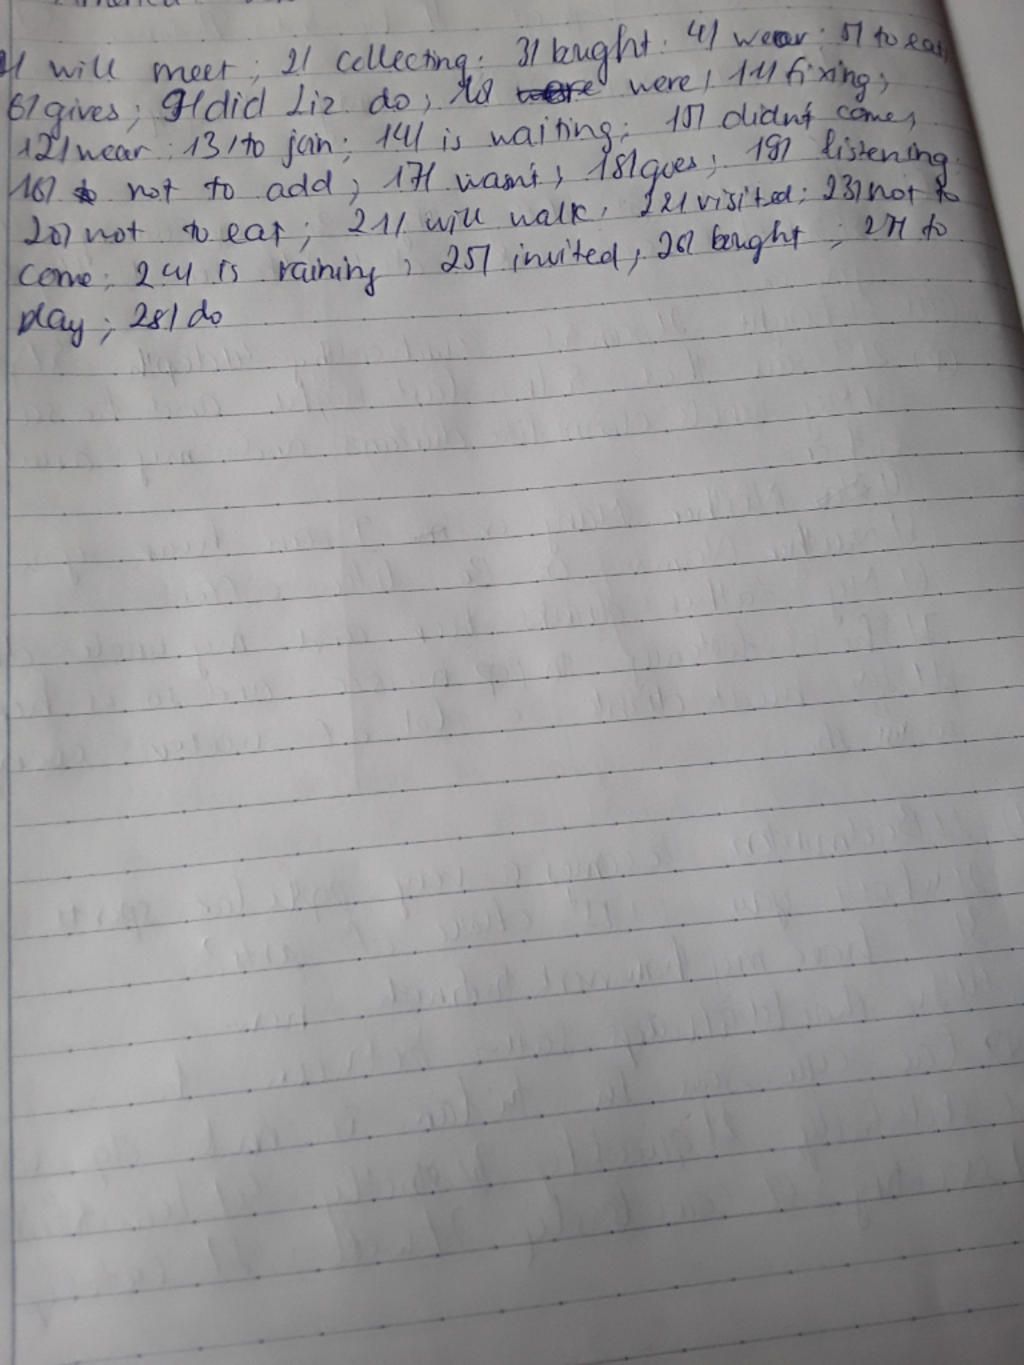 1/ will meet; 2/ collecting; 3/ bought; 4/ wear; 5/ to eat,
6/ gives; 9/ did Liz do; 10/ were; 11/ fixing;
12/ wear; 13/ to join; 14/ is waiting; 15/ didn't come,
16/ not to add; 17/ wasn't; 18/ goes; 19/ listening.
20/ not to eat; 21/ will walk. 22/ visited; 23/ not to
come; 24/ is raining; 25/ invited; 26/ bought; 27/ to
play; 28/ do